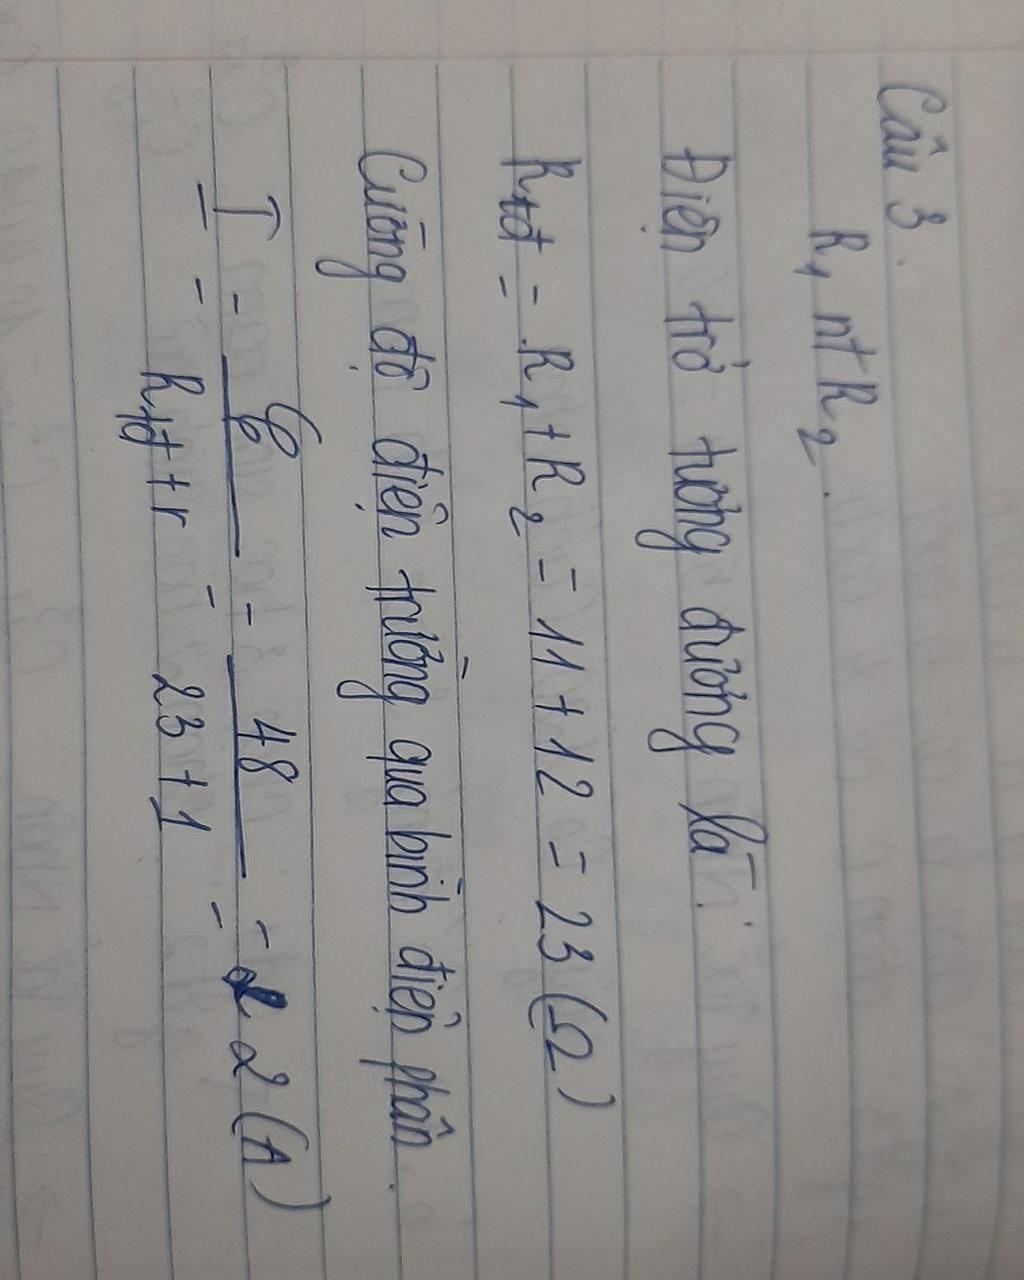 Câu 3.
R₁ nt R₂.
Điện trở tương đương là:
Rtđ = R₁ + R₂ = 11 + 12 = 23 (Ω)
Cường độ điện trường qua bình điện phân.
I = ℰ / (Rtđ + r) = 48 / (23 + 1) = 2 (A)